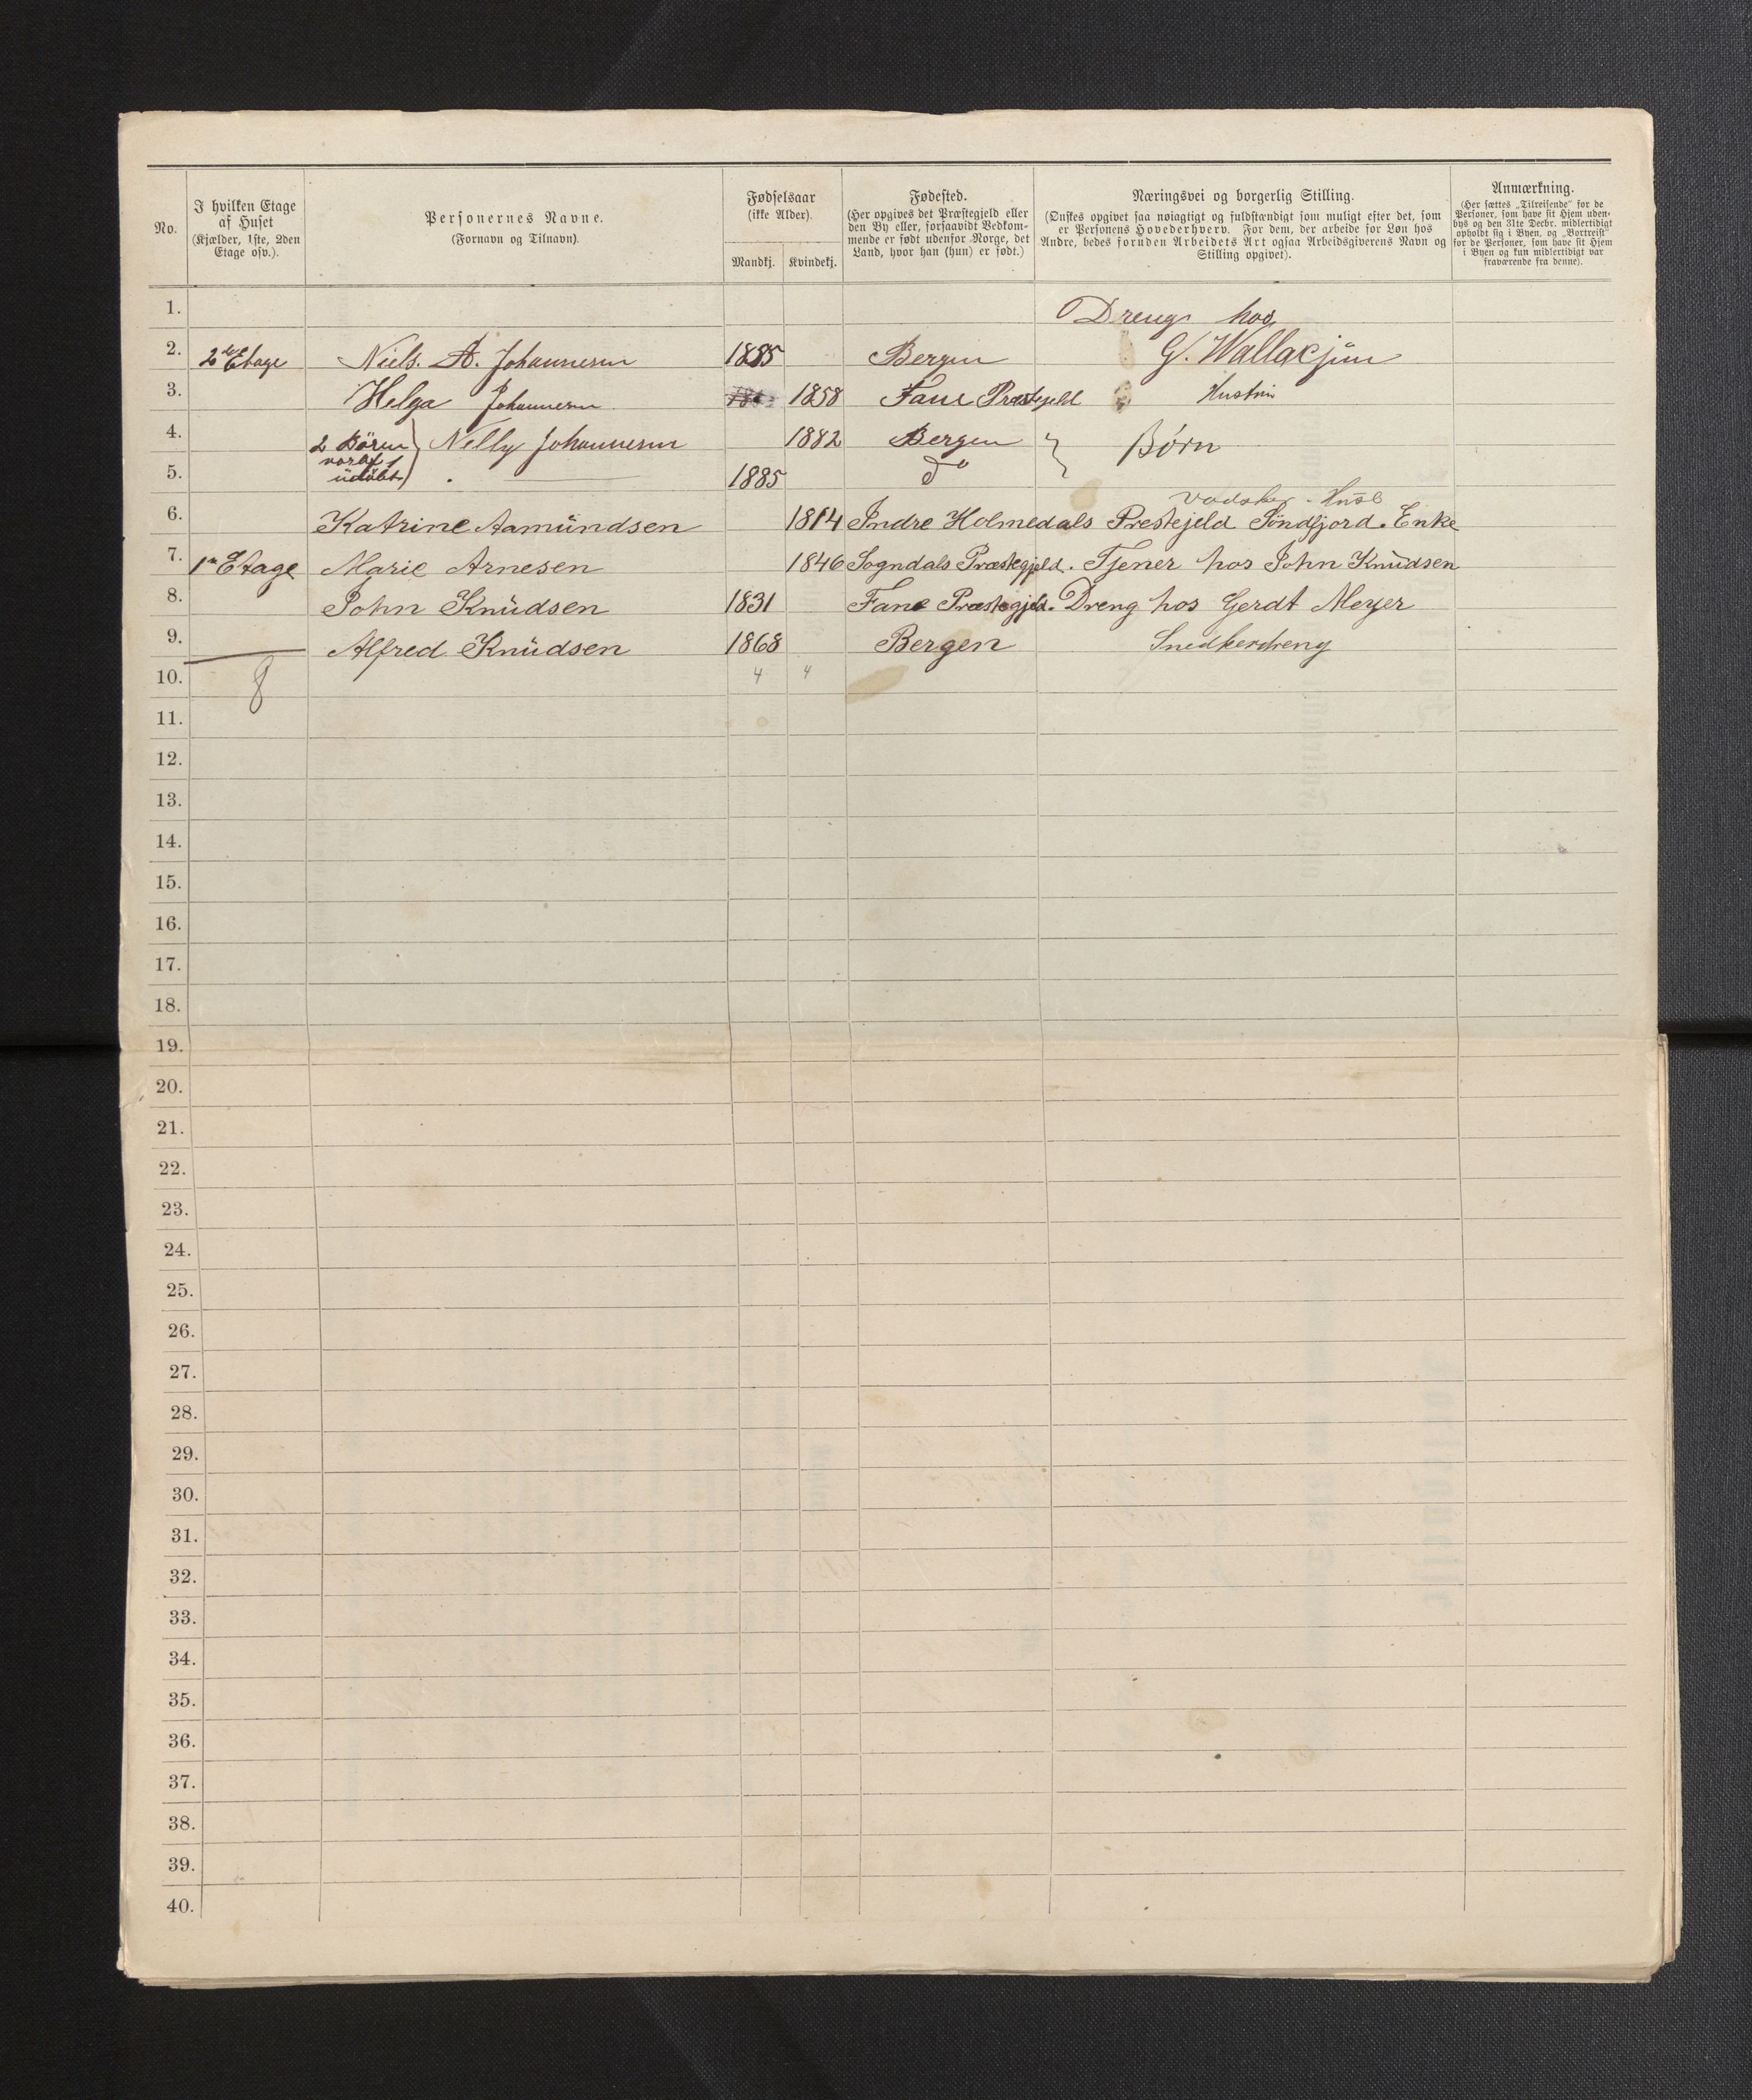 No.
I hvilken Etage
af Huset
(Kjælder, 1ste, 2den
Etage osv.).
Personernes Navne.
(Fornavn og Tilnavn).
Fødselsaar
(ikke Alder).
Mandkj. Kvindekj.
Fødested.
(Her opgives det Præstegjeld eller
den By eller, forsaavidt Vedkom-
mende er født udenfor Norge, det
Land, hvor han (hun) er født.)
Næringsvei og borgerlig Stilling.
(Ønskes opgivet saa nøiagtigt og fuldstændigt som muligt efter det, som
er Personens Hovederhverv. For dem, der arbeide for Løn hos
Andre, bedes foruden Arbeidets Art ogsaa Arbeidsgiverens Navn og
Stilling opgivet).
Anmærkning.
(Her sættes „Tilreisende“ for de
Personer, som have sit Hjem uden-
bys og den 31te Decbr. midlertidigt
opholdt sig i Byen, og „Bortreist“
for de Personer, som have sit Hjem
i Byen og kun midlertidigt var
fraværende fra denne).
1. Dreng hos
2. 2den Etage Niels. A. Johannesen 1855 Bergen G. Wallac jün
3. Helga Johannesen 1858 Fane Præstegjeld Hustru
4. 2 Börn Nelly Johannesen 1882 Bergen Børn
voraf 1
5. üdöbt 1885 do
Vadsker. Husl
6. Katrine Aamündsen 1814 Indre Holmedals Prestejeld Söndfjord. Enke
7. 1ste Etage Marie Arnesen 1846 Sogndals Præstegjeld. Tjener hos John Knüdsen
8. John Knüdsen 1831 Fane Præstegjeld. Dreng hos Gerdt Meyer
9. Alfred Knüdsen 1868 Bergen Snedkerdreng
10. 8 4 4
11.
12.
13.
14.
15.
16.
17.
18.
19.
20.
21.
22.
23.
24.
25.
26.
27.
28.
29.
30.
31.
32.
33.
34.
35.
36.
37.
38.
39.
40.